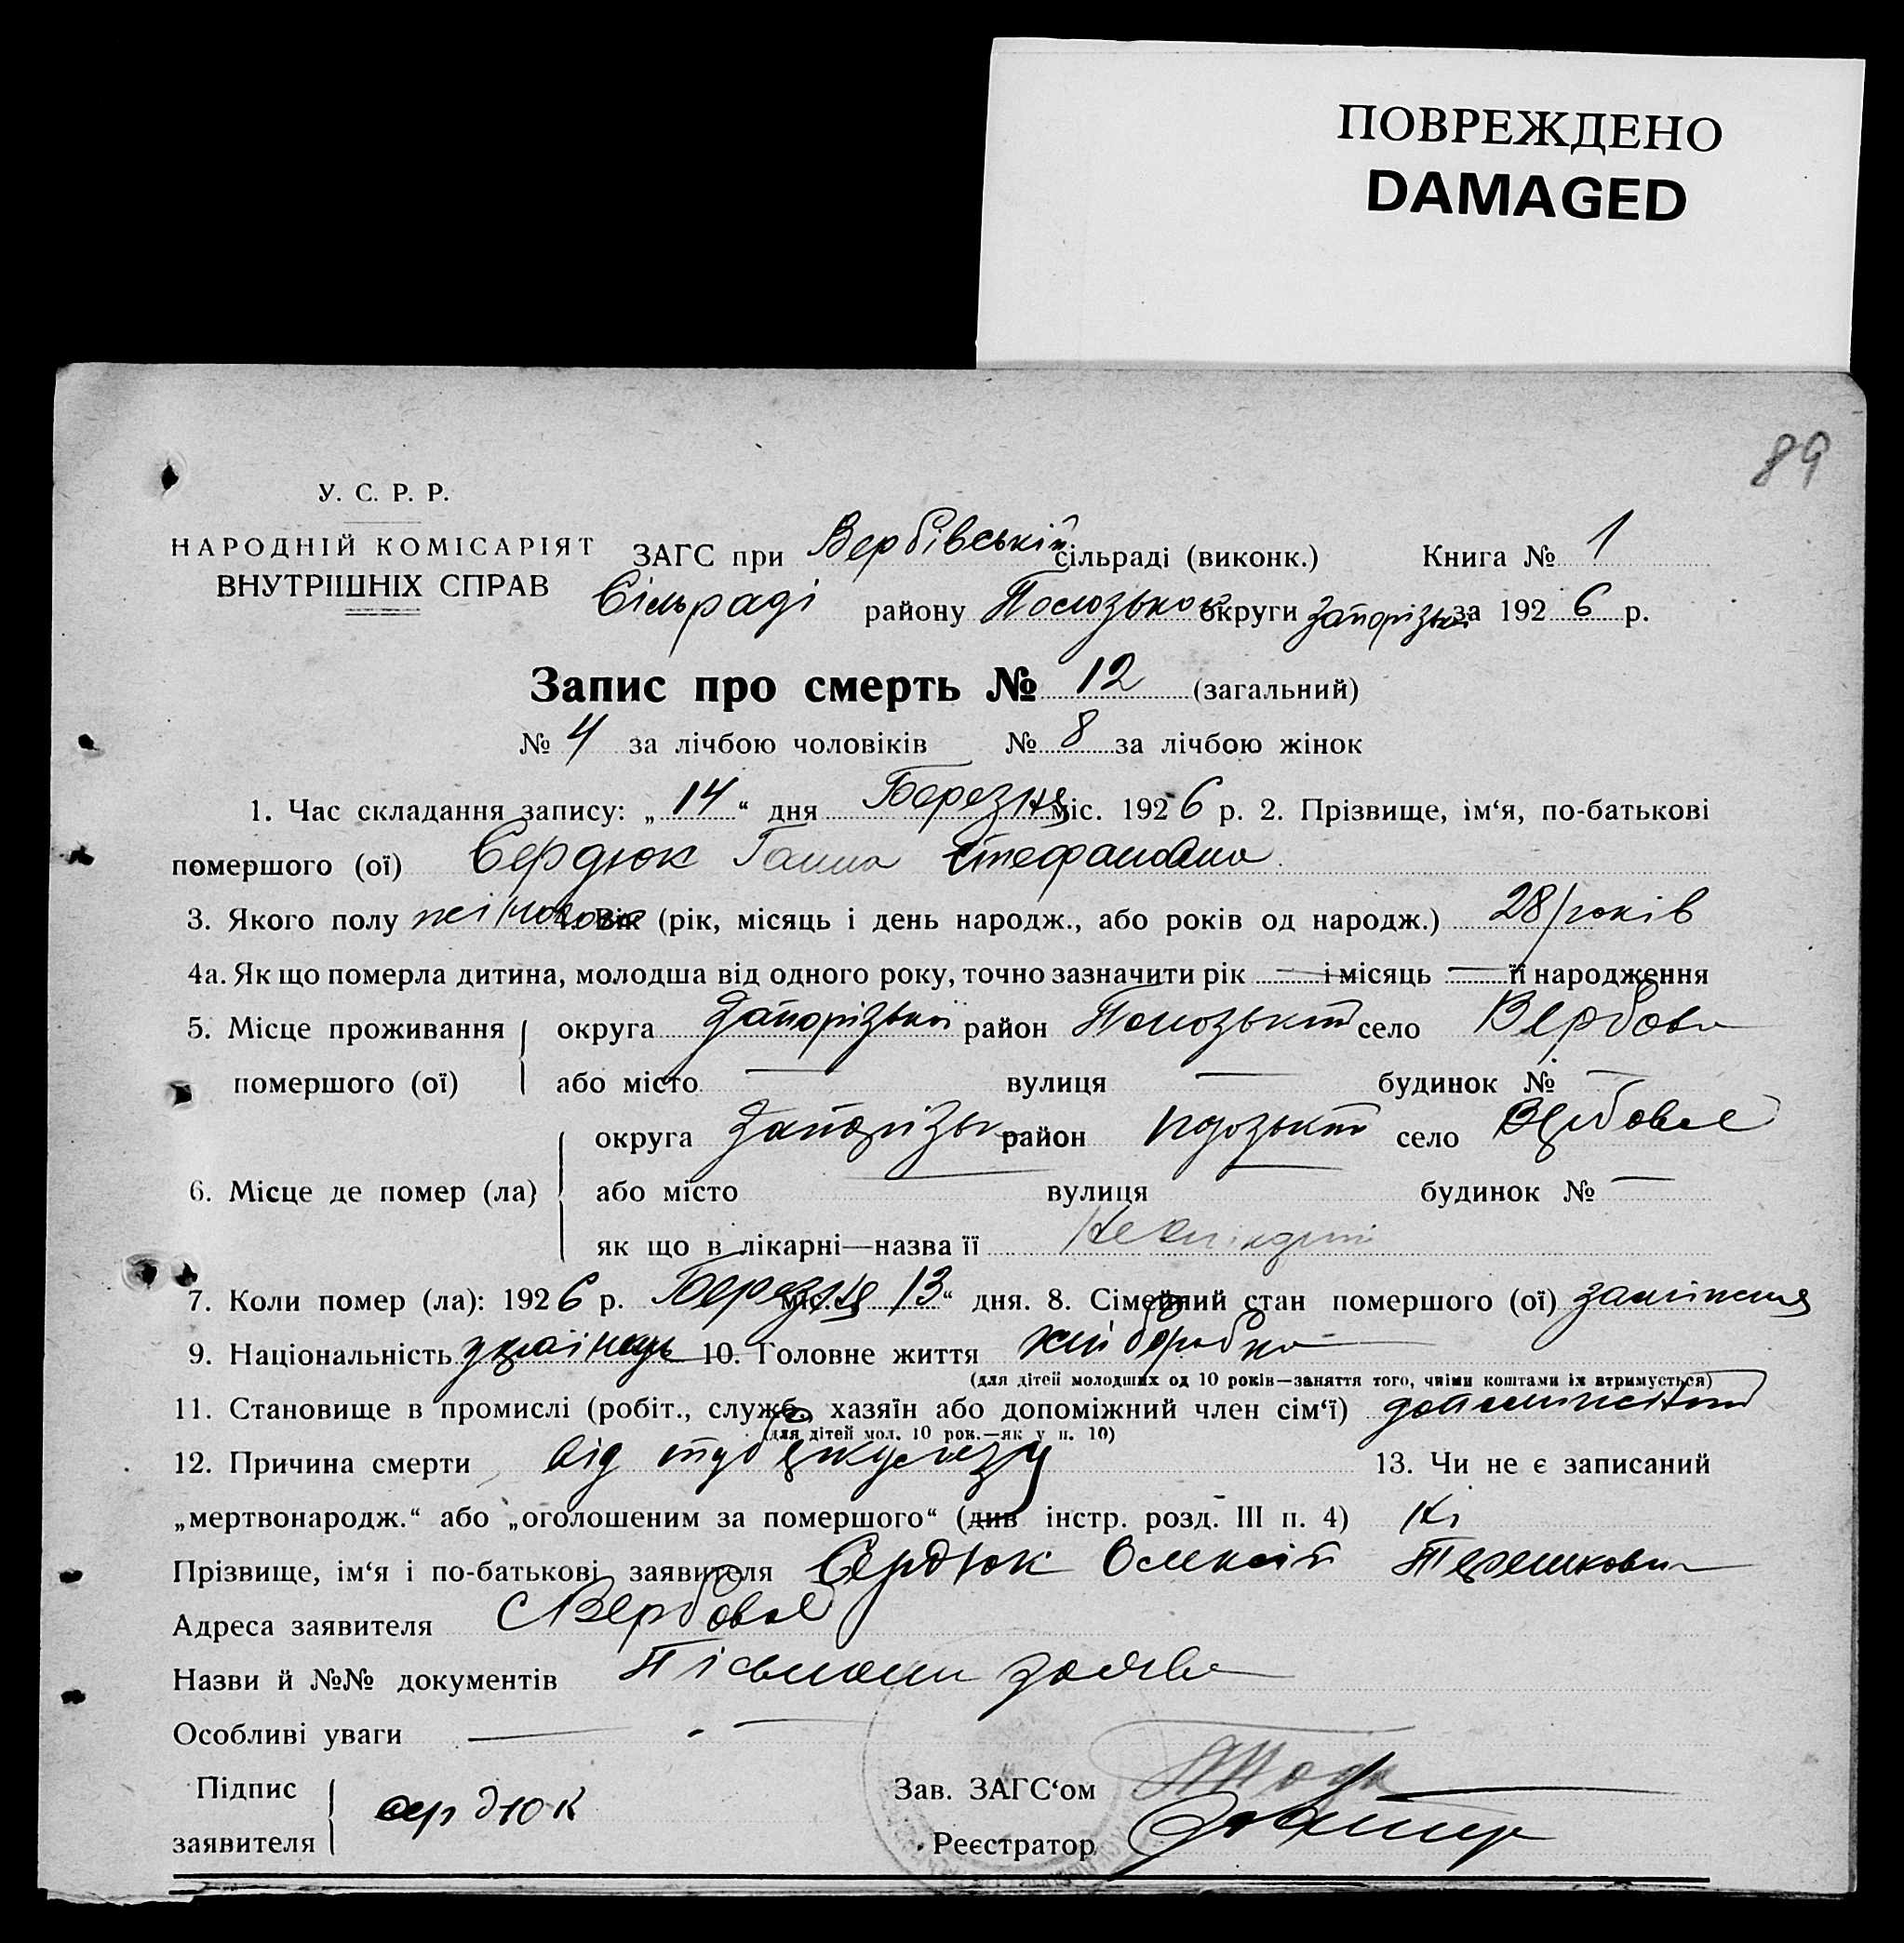 ПОВРЕЖДЕНО
DAMAGED
89
У. С. Р. Р.
НАРОДНІЙ КОМІСАРІЯТ
ВНУТРІШНІХ СПРАВ
ЗАГС при Вербівській сільраді (виконк.) Книга № 1
Сільраді району Полозького округи Запорізької за 1926 р.
Запис про смерть № 12 (загальний)
№ 4 за лічбою чоловіків № 8 за лічбою жінок
1. Час складання запису: „14“ дня Березня міс. 1926 р. 2. Прізвище, ім‘я, по-батькові
помершого (ої) Сердюк Ганна Стефановна
3. Якого полу жіночого 4. Вік (рік, місяць і день народж., або років од народж.) 28 років
4а. Як що померла дитина, молодша від одного року, точно зазначити рік — і місяць — її народження
5. Місце проживання округа Запорізької район Полозький село Вербове
помершого (ої) або місто — вулиця — будинок № —
округа Запорізьк район село Вербовое
6. Місце де помер (ла) або місто вулиця будинок № —
як що в лікарні—назва її
7. Коли помер (ла): 1926 р. Березня міс. „13“ дня. 8. Сімейний стан помершого (ої) заміжня
9. Національність українець 10. Головне життя хліборобка
(для дітей молодших од 10 років—заняття того, чиїми коштами їх втримується)
11. Становище в промислі (робіт., служб., хазяїн або допоміжний член сім‘ї)
(для дітей мол. 10 рок.—як у п. 10)
12. Причина смерти від туберкульозу 13. Чи не є записаний
„мертвонародж.“ або „оголошеним за помершого“ (див інстр. розд. III п. 4) Ні
Прізвище, ім‘я і по-батькові заявителя Сердюк Олексій
Адреса заявителя с Вербовое
Назви й №№ документів Пісьмони заява
Особливі уваги —
Підпис
заявителя сердюк
Зав. ЗАГС‘ом
Реєстратор